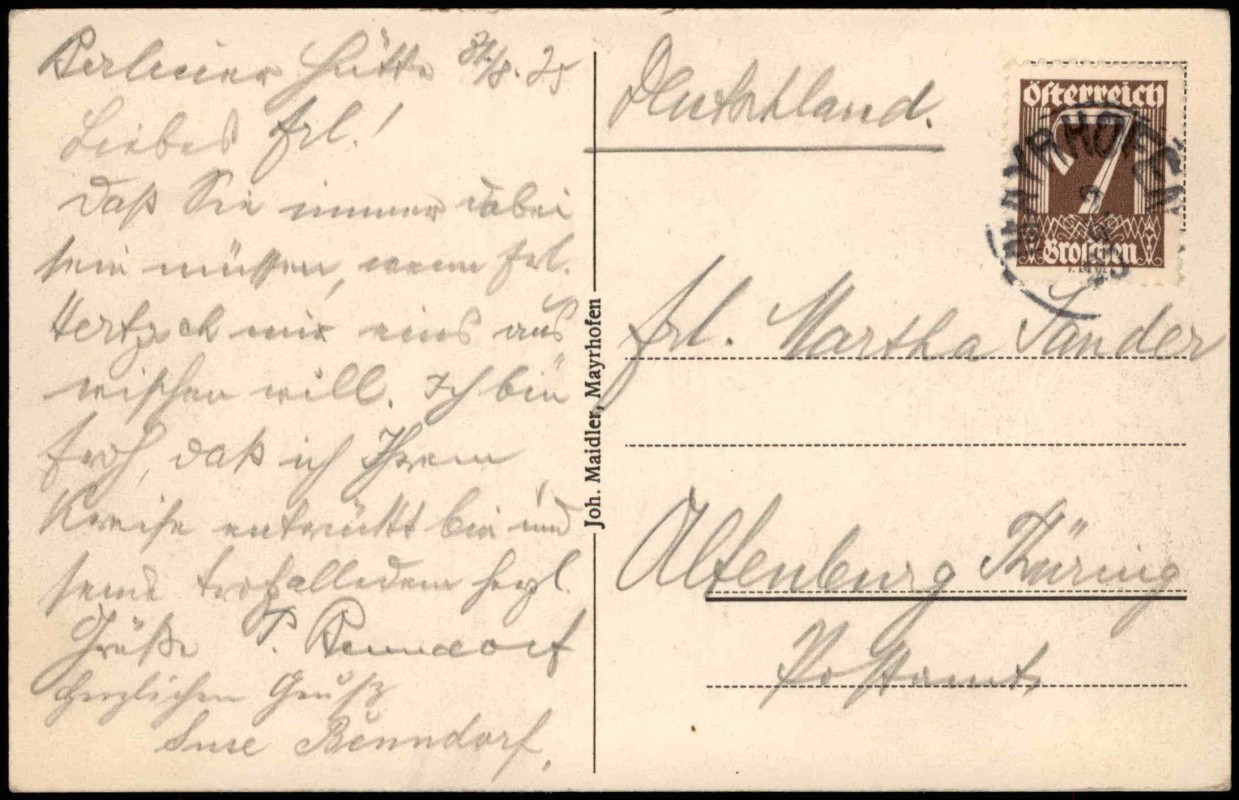 Berliner Hütte 31./8. 25
Liebes Frl.!
Daß Sie immer dabei
sein müssen, wenn Frl.
Hertzsch mir eins aus
wischen will. Ich bin
froh, daß ich Ihrem
Kreise entrückt bin und
sende trotzalledem herzl.
Grüße P. Benndorf
Herzlichen Gruß
Suse Benndorf.
Joh. Maidler, Mayrhofen
Deutschland.
Österreich
7
Groschen
MAYRHOFEN
Frl. Martha Sander
Altenburg Thüring
Postamt.